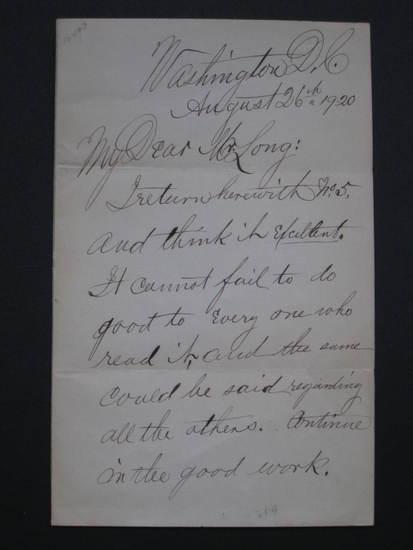 Washington D.C.
August 26th 1920
My Dear Mr. Long:
I return herewith No. 5.
and think it Excellent.
It cannot fail to do
good to Every one who
read it, and the same
could be said regarding
all the others. Continue
in the good work.